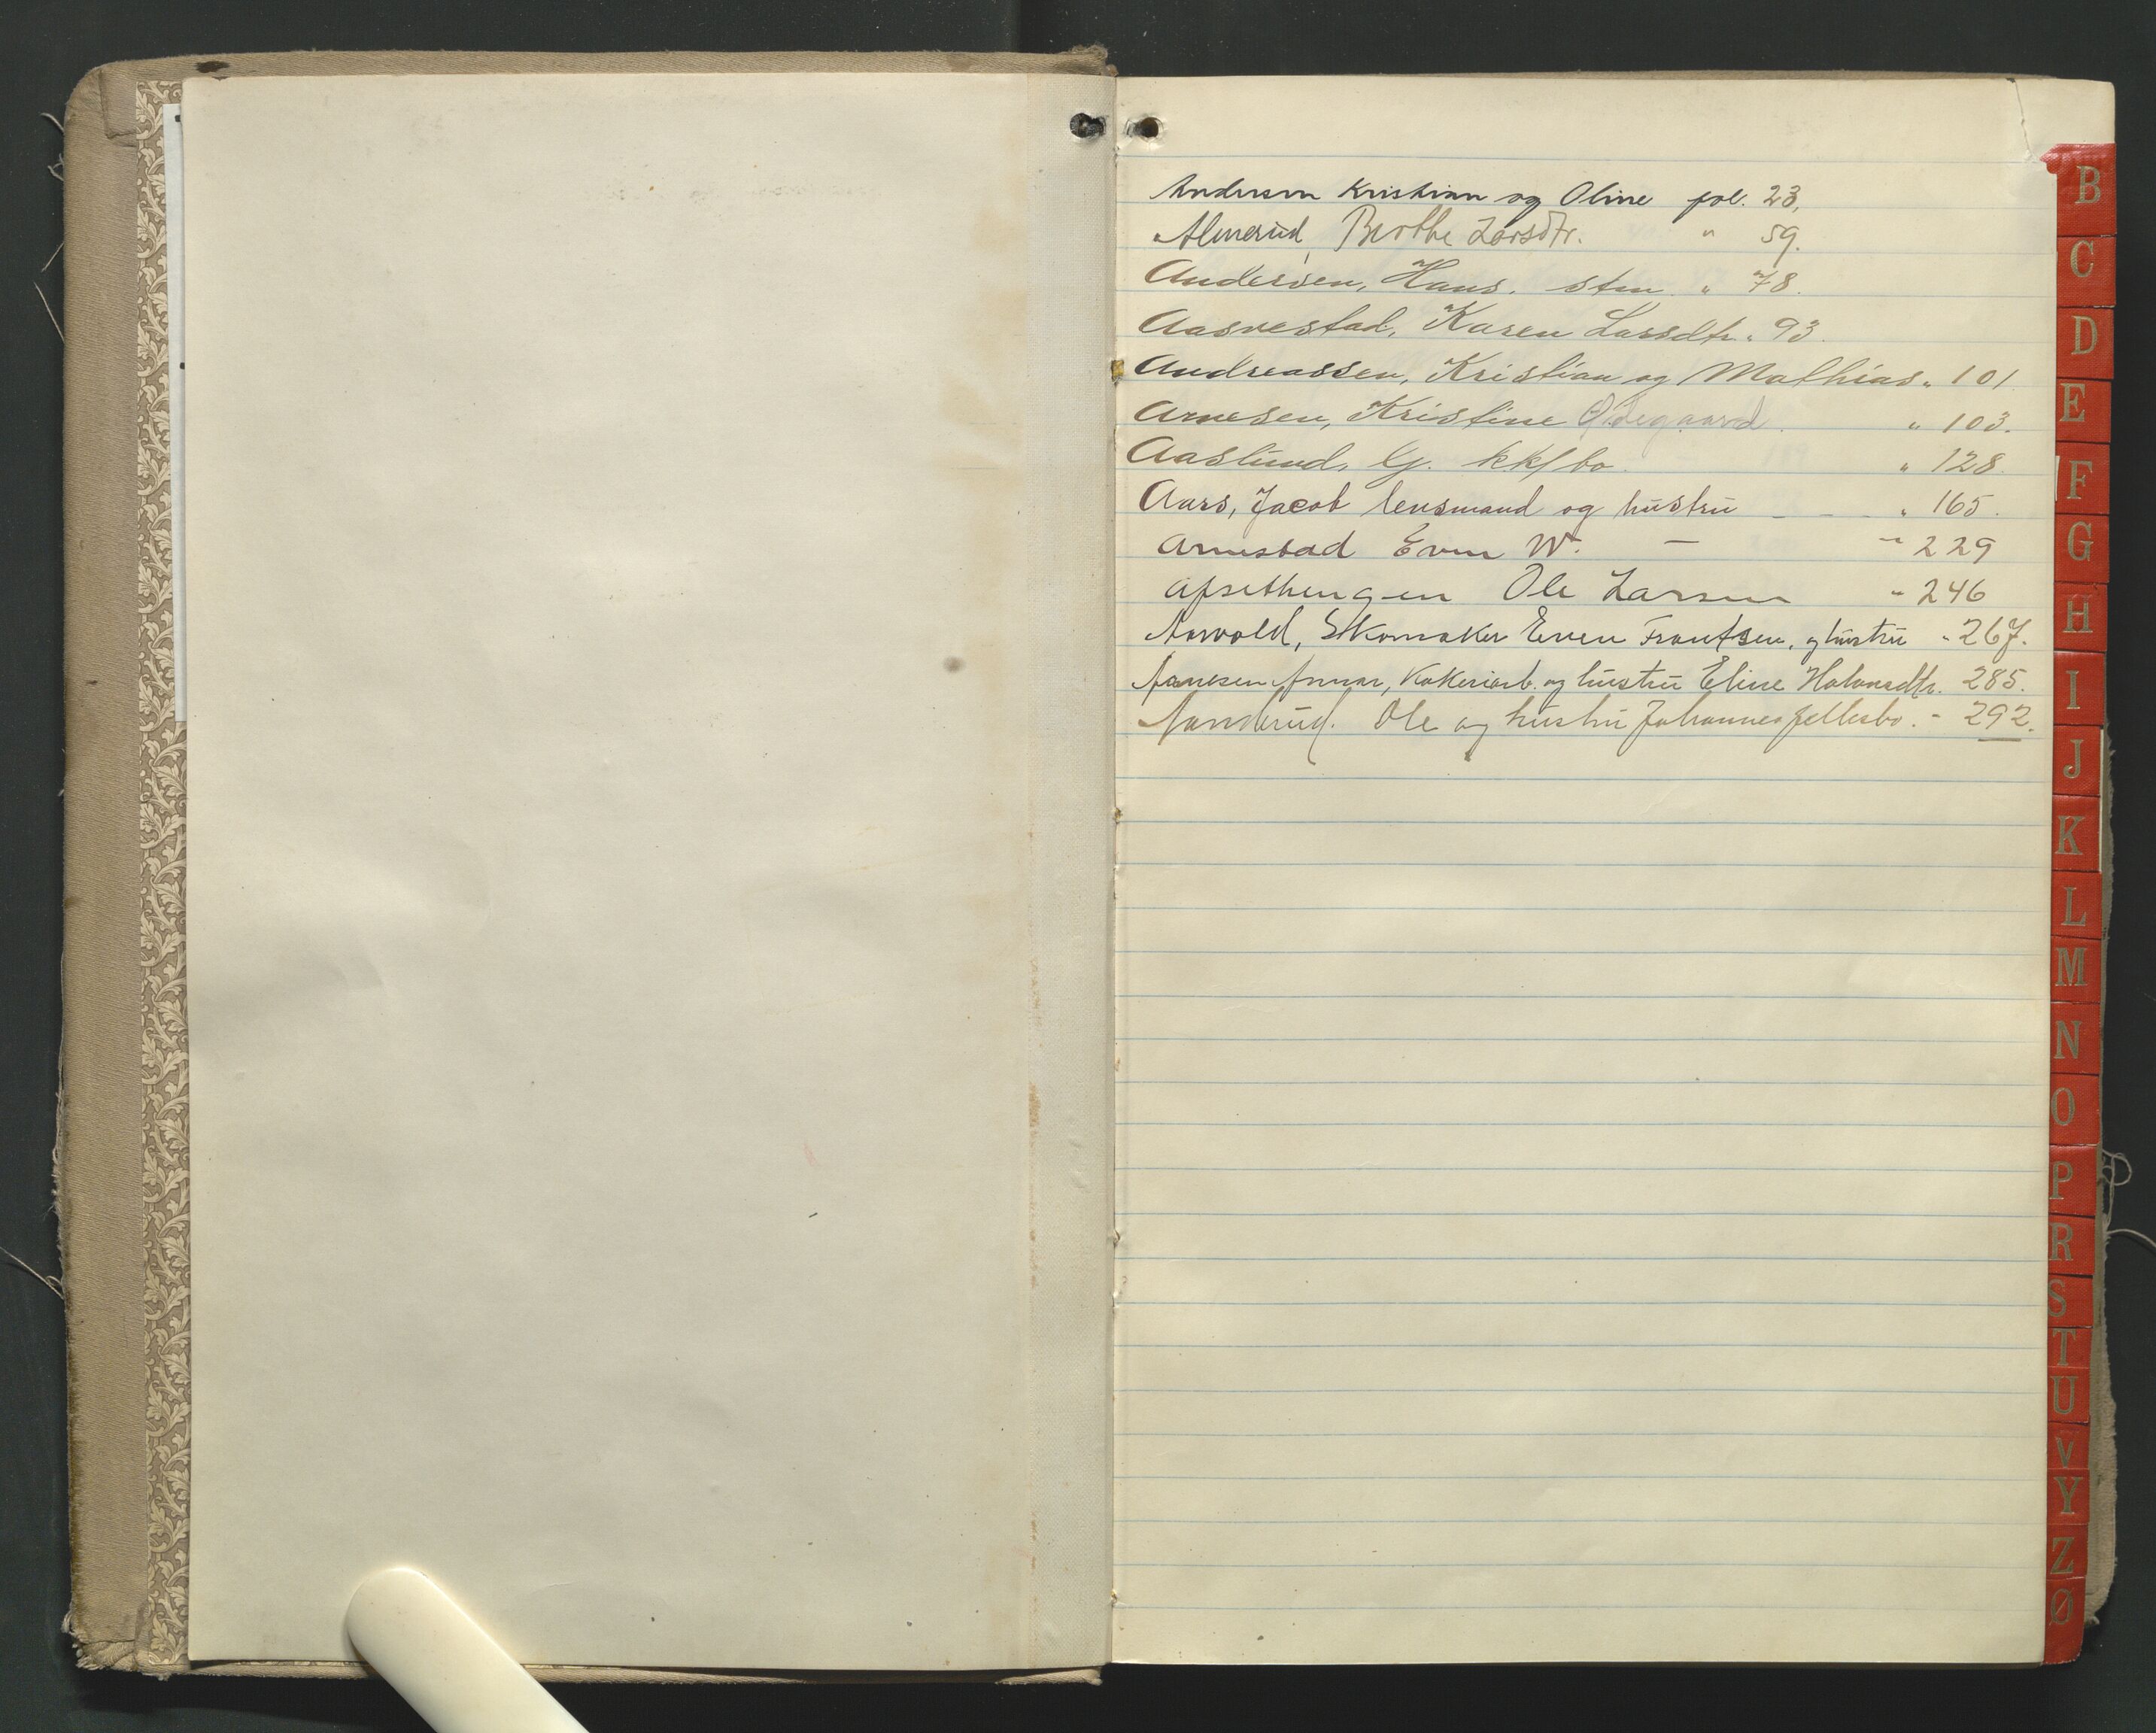 Andersen Kristian og Oline fol. 23.
Almerud, Berthe Larsdtr. " 59.
Andersen, Hans. stm. " 78.
Aasvestad, Karen Larsdtr. " 93.
Andreassen, Kristian og Mathias " 101.
Arnesen, Kristine Ødegaard. " 103.
Aaslund, G. kkf bo. " 128.
Aars, Jacob lensmand og hustru " 165.
Arnestad Even W. — " 229
Afsethengen Ole Larsen " 246
Aarvold, Skomaker Even Frantsen, og hustru " 267.
Aanesen Annar, og hustru Eline Halvorsdtr. 285.
Aanderud. Ole og hustru Johannes fellesbo. - 292.
B
C
D
E
F
G
H
I
J
K
L
M
N
O
P
R
S
T
U
V
Y
Z
Ø